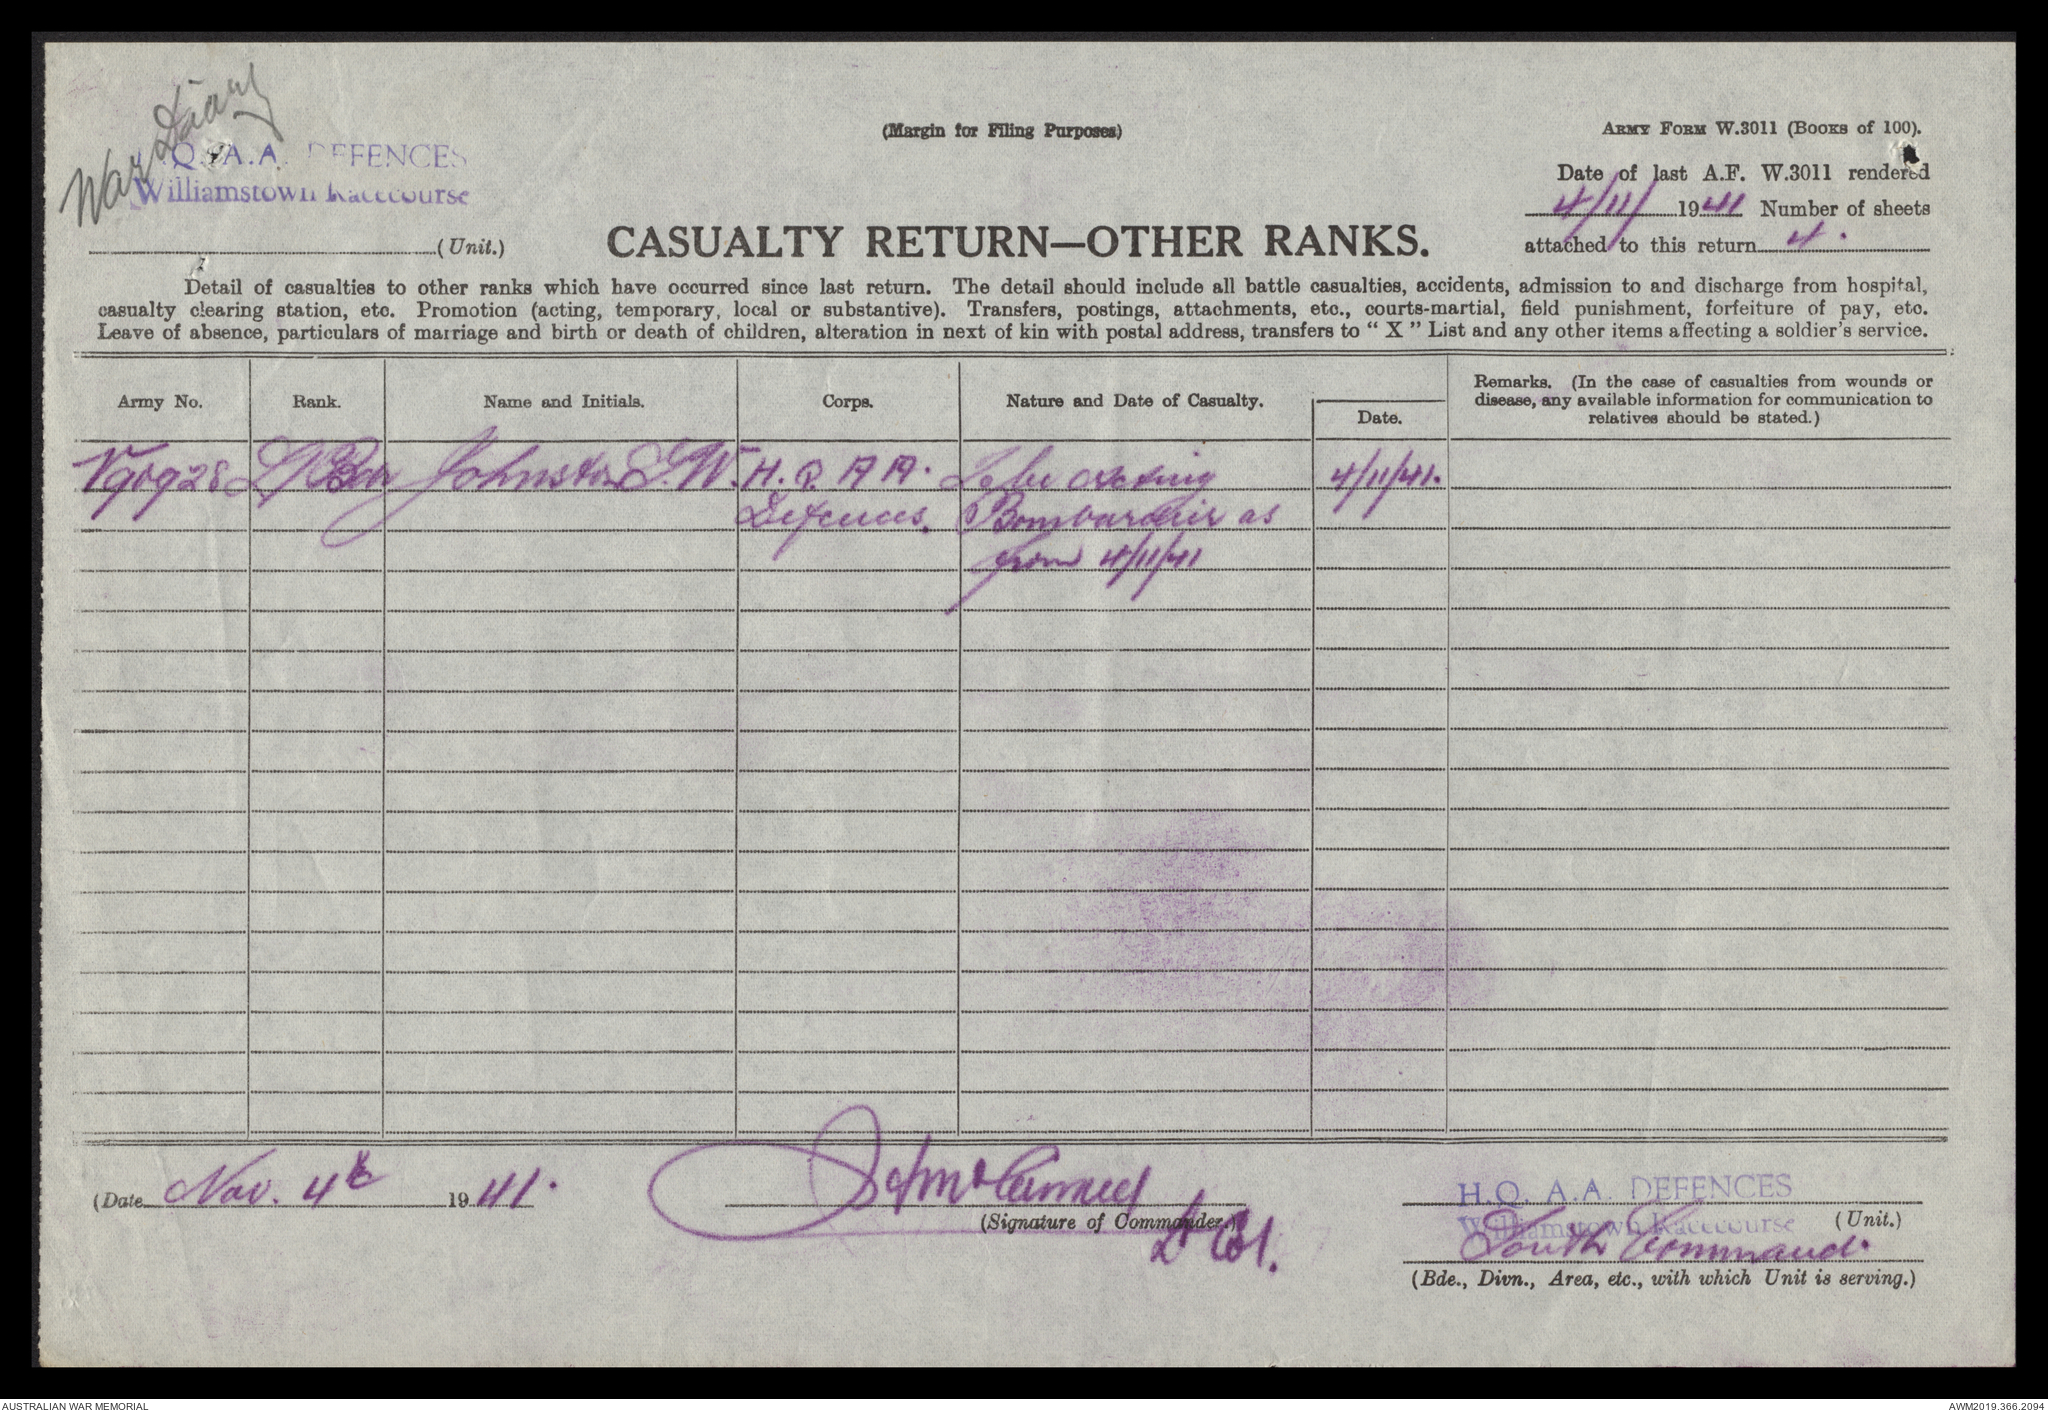 War Diary
H.Q. A.A. DEFENCES
Williamstown Racecourse
(Unit.)
(Margin for Filing Purposes)
ARMY FORM W.3011 (Books of 100).
Date of last A.F. W.3011 rendered
4/11/ 1941 Number of sheets
attached to this return 4.
CASUALTY RETURN—OTHER RANKS.
Detail of casualties to other ranks which have occurred since last return. The detail should include all battle casualties, accidents, admission to and discharge from hospital,
casualty clearing station, etc. Promotion (acting, temporary, local or substantive). Transfers, postings, attachments, etc., courts-martial, field punishment, forfeiture of pay, etc.
Leave of absence, particulars of marriage and birth or death of children, alteration in next of kin with postal address, transfers to “ X ” List and any other items affecting a soldier's service.
Army No. Rank. Name and Initials. Corps. Nature and Date of Casualty. Date.
Remarks. (In the case of casualties from wounds or
disease, any available information for communication to
relatives should be stated.)
L/Bdr Johnston W. H.Q. A A. To be acting 4/11/41.
Defences. Bombardier as
from 4/11/41
(Date Nov. 4th 1941.
(Signature of Commander.)
Lt Col.
H.Q. A.A. DEFENCES
Williamstown Racecourse (Unit.)
South Command.
(Bde., Divn., Area, etc., with which Unit is serving.)
AUSTRALIAN WAR MEMORIAL
AWM2019.366.2094